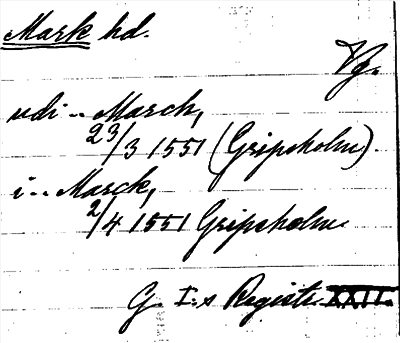 Mark hd.
Vg.
udi -- March,
23/3 1551 (Gripsholm).
i -- Marck,
2/4 1551 Gripsholm.
G. I.s Registr. XXII.